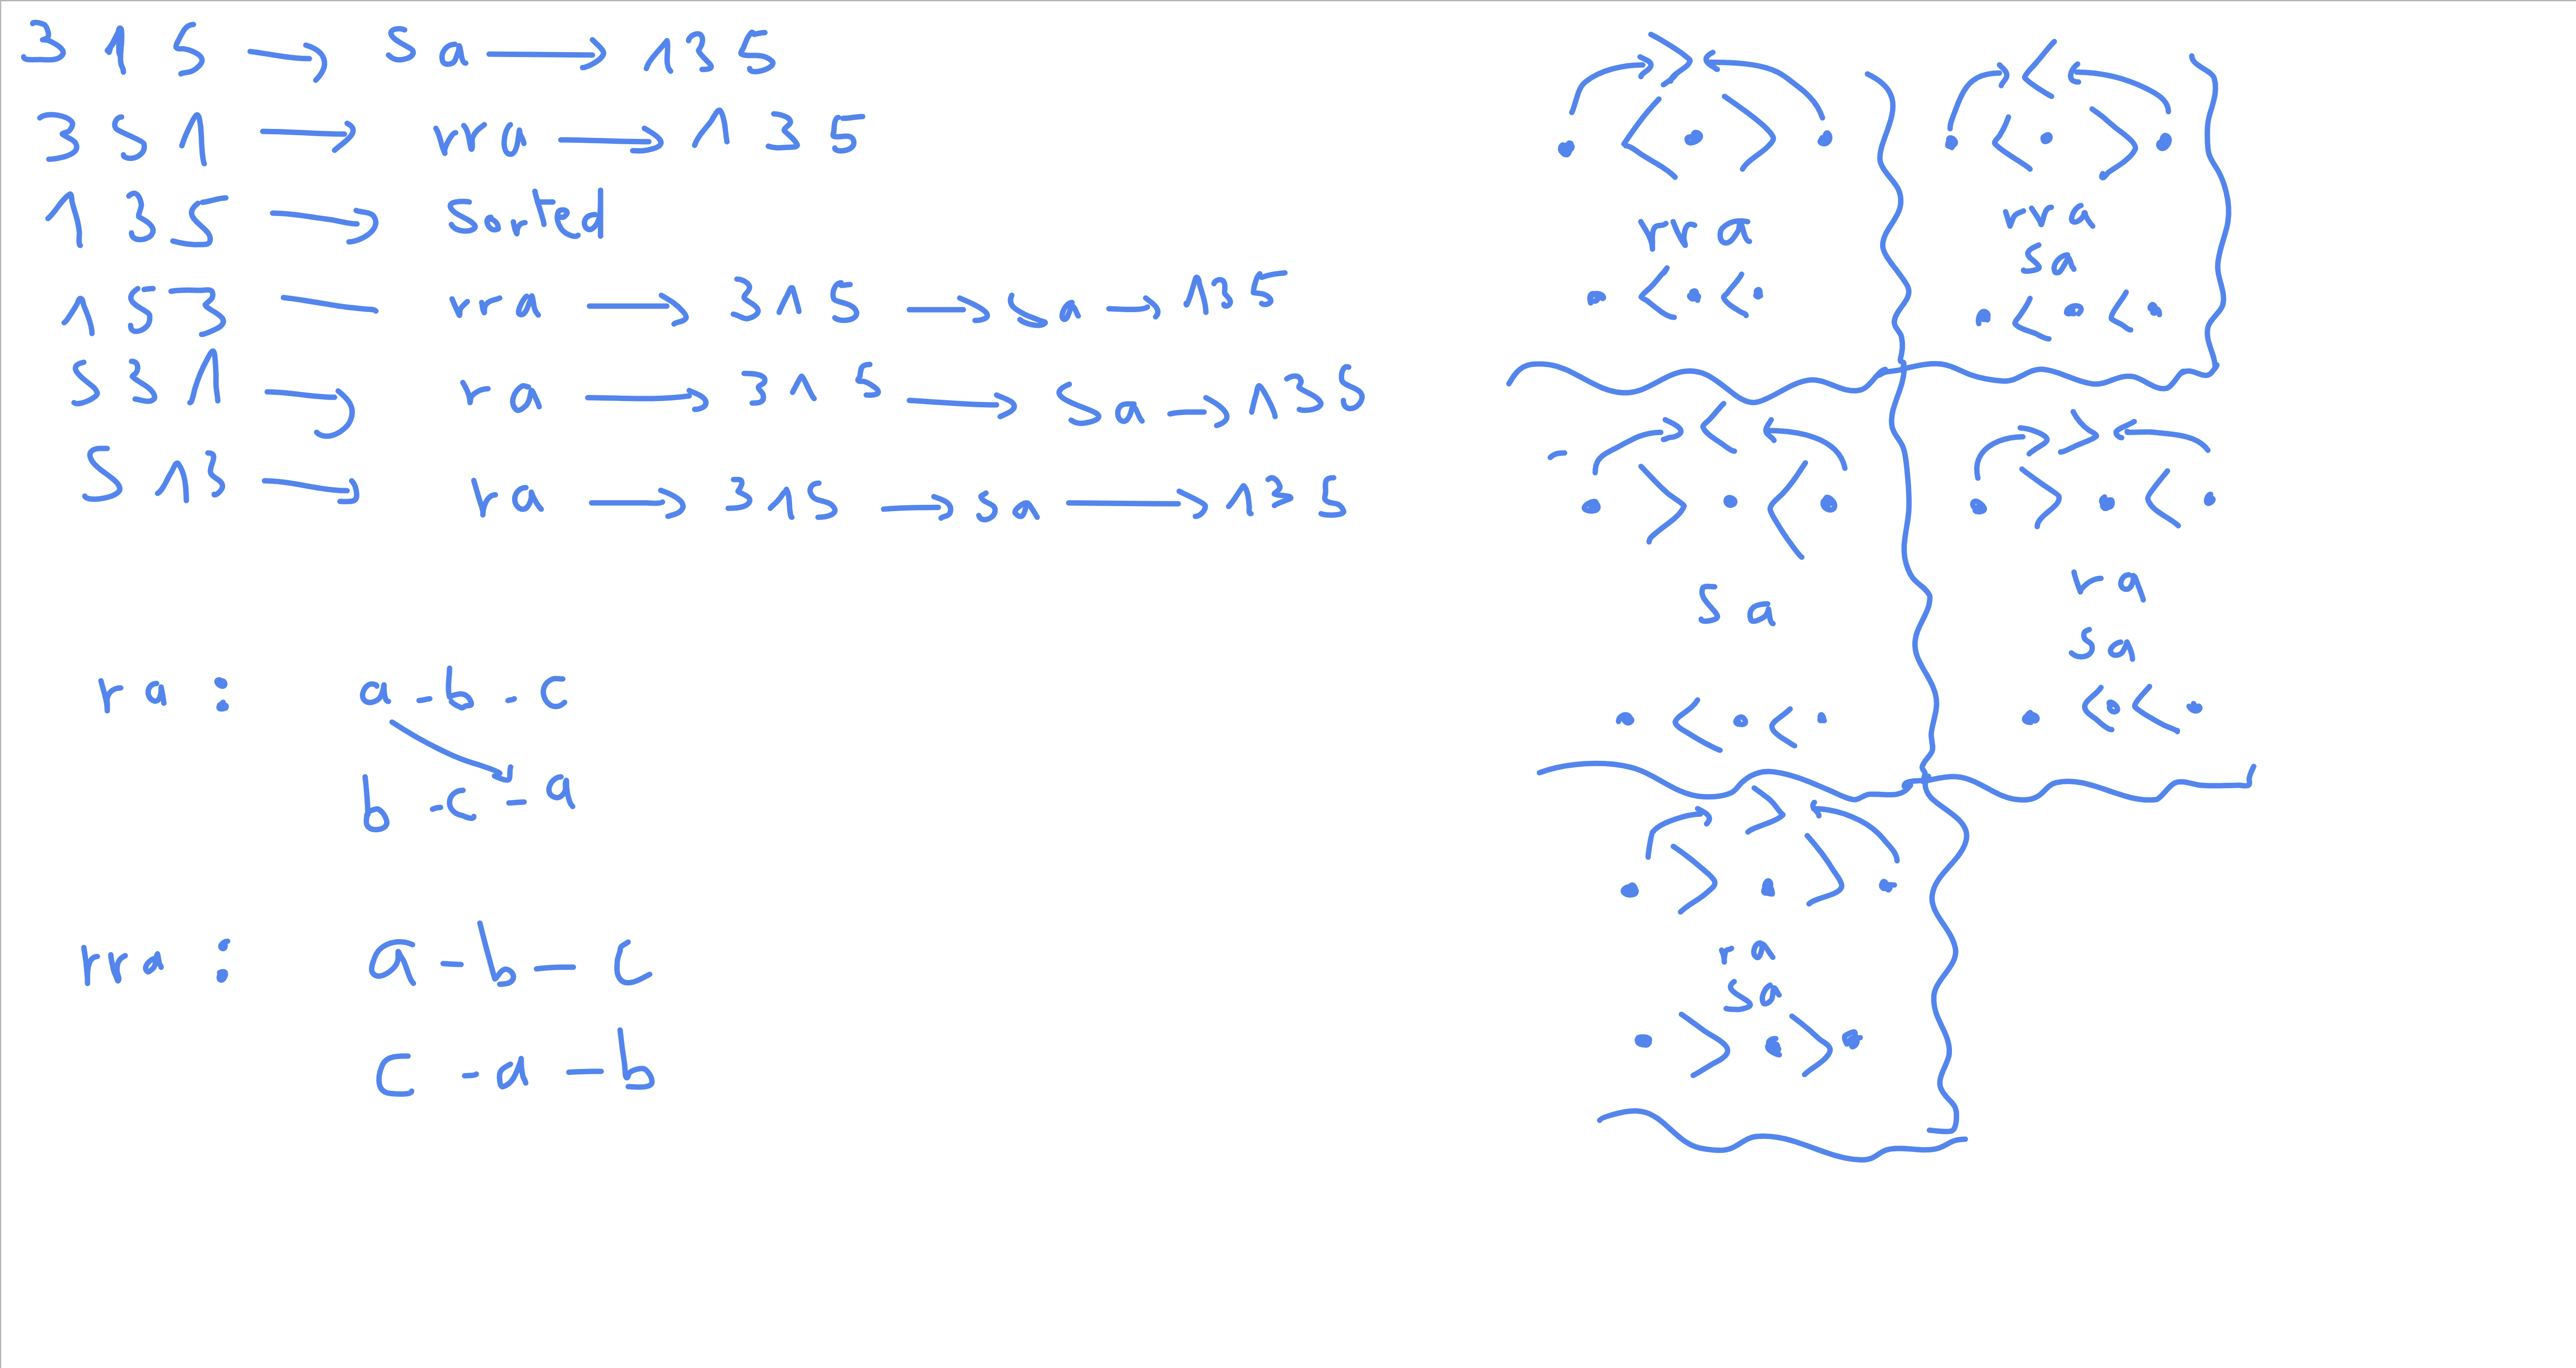 3 1 5 → sa → 1 3 5
3 5 1 → rra → 1 3 5
1 3 5 → Sorted
1 5 3 — rra → 3 1 5 → sa → 1 3 5
5 3 1 → ra → 3 1 5 → sa → 1 3 5
5 1 3 → ra → 3 1 5 → sa → 1 3 5
ra : a - b - c
b - c - a
rra : a - b - c
c - a - b
>
• < • > •
rra
• < • < •
<
• < • > •
rra
sa
• < • < •
<
• > • < •
sa
• < • < •
>
• > • < •
ra
sa
• < • < •
>
• > • > •
ra
sa
• > • > •